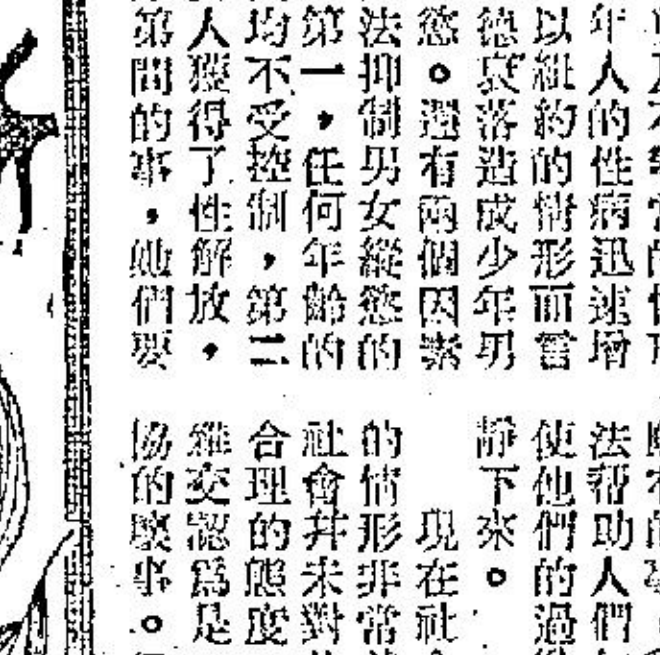 年人的性病迅速增
以紐約的情形而言
德衰落造成少年男
慾。還有兩個因素
法抑制男女縱慾的
第一,任何年齡的
均不受控制,第二
人獲得了性解放,
第間的事,她們要
法帮助人們
使他們的過
靜下來。
現在社
的情形非常
社會並未對
合理的態度
雜交認爲是
協的壞事。